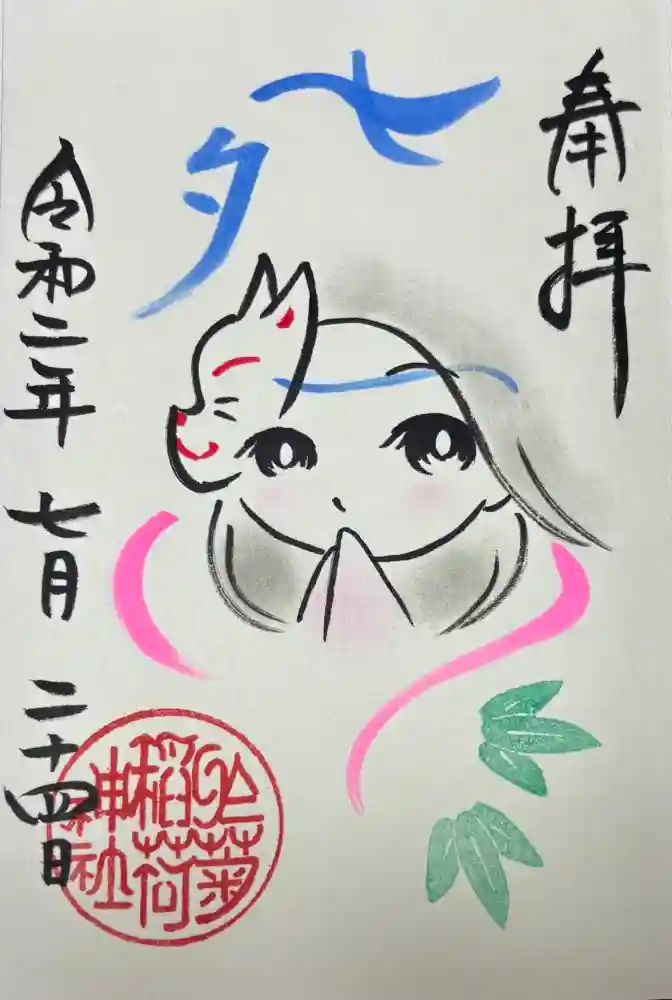 奉拝
七夕
令和二年 七月 二十四日
於菊
稲荷
神社